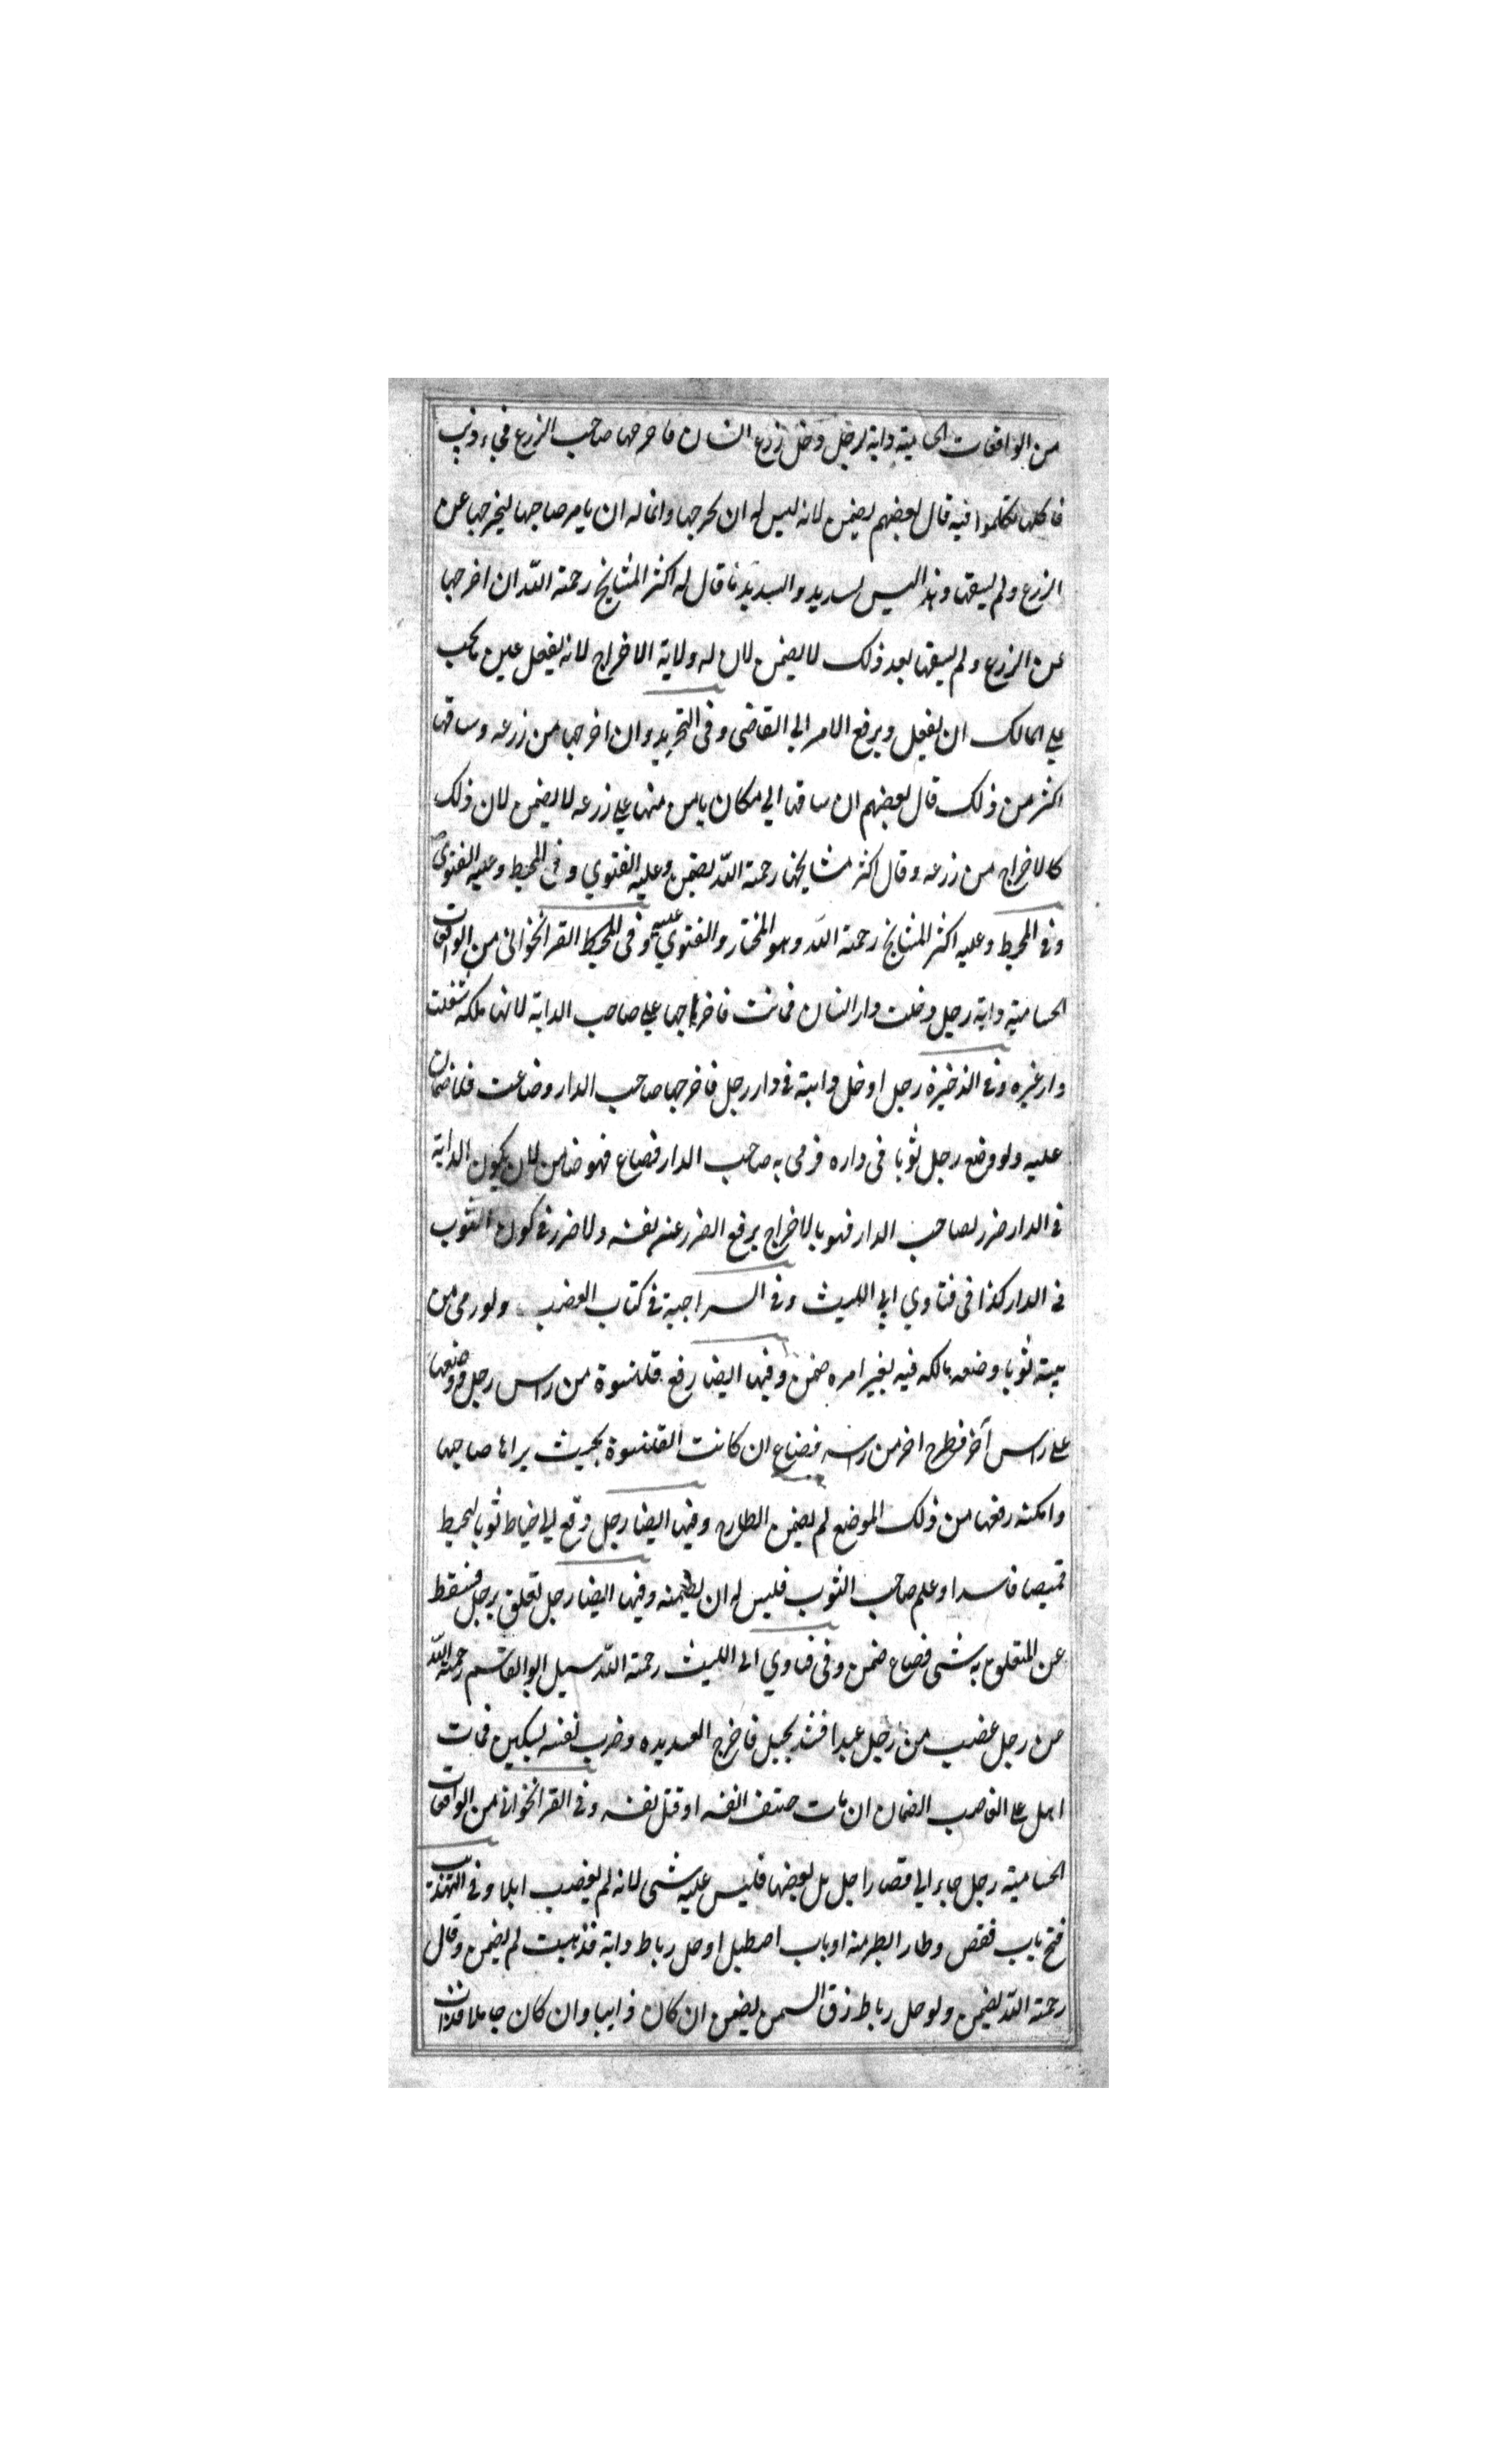 من الواقعات الحسامية دابة لرجل دخل زرع انسان فاخرجها صاحب الزرع فجاء ذئب
فاكلها تكلموا فيه قال بعضهم يضمن لانه ليس له ان يخرجها وانما له ان يامر صاحبها ليخرجها عن
الزرع ولم يسقها وهذا ليس بسديد والسديد ما قال له اكثر المشايخ رحمة الله ان اخرجها
عن الزرع ولم يسقها بعد ذلك لا يضمن لان له ولاية الاخراج لانه يفعل عين ما يجب
على المالك ان يفعل ويرفع الامر الى القاضى وفى التجريد وان اخرجها من زرعه وساقها
اكثر من ذلك قال بعضهم ان ساقها الى مكان يامن منها على زرعه لا يضمن لان ذلك
كالاخراج من زرعه وقال اكثر مشايخنا رحمة الله يضمن وعليه الفتوي وفى المحيط وعليه الفتوى
وفى المحيط وعليه اكثر المشايخ رحمة الله وهو المختار والفتوي عليه وفى المحيط القراخوانى من الواقعات
الحسامية دابة رجل دخلت دار انسان فماتت فاخراجها على صاحب الدابة لانها ملكه شغلت
دار غيره وفى الذخيرة رجل ادخل دابته فى دار رجل فاخرجها صاحب الدار وضاعت فلا ضمان
عليه ولو وضع رجل ثوبا فى داره فرمى به صاحب الدار فضاع فهو ضامن لان بكون الدابة
فى الدار ضرر لصاحب الدار فهو بالاخراج يرفع الضرر عن نفسه ولا ضرر فى كون الثوب
فى الدار كذا فى فتاوي ابى الليث وفى السراجية فى كتاب الغضب ولو رمى من
بيته ثوبا وضعه مالكه فيه بغير امره ضمن وفيها ايضا رفع قلنسوة من راس رجل ووضعها
على راس آخر فطرح اخر من راسه فضاع ان كانت القلنسوة بحيث يراها صاحبها
وامكنه رفعها من ذلك الموضع لم يضمن الطارح وفيها ايضا رجل دفع الى خياط ثوبا ليخيط
قميصا فاسدا وعلم صاحب الثوب فليس له ان يضمنه وفيها ايضا رجل تعلق برجل فسقط
عن المتعلق به شى فضاع ضمن وفى فتاوي ابى الليث رحمة الله سيل ابو القاسم رحمة الله
من رجل غضب من رجل عبدا فشد بحبل فاخرج العبد يده وضرب نفسه بسكين فمات
اهل على الغاصب الضمان ان مات حتف انفه او قتل نفسه وفى القراخوانى من الواقعات
الحسامية رجل جاء الى قصار اجل بل بعضها فليس عليه شى لانه لم يغصب ابلها وفى التهذيب
فتح باب قفص وطار الطير منه او باب اصطبل او حل رباط دابة فذهبت لم يضمن وقال
رحمة الله يضمن ولو حل رباط زق السمن يضمن ان كان ذايبا وان كان جامدا فذاب